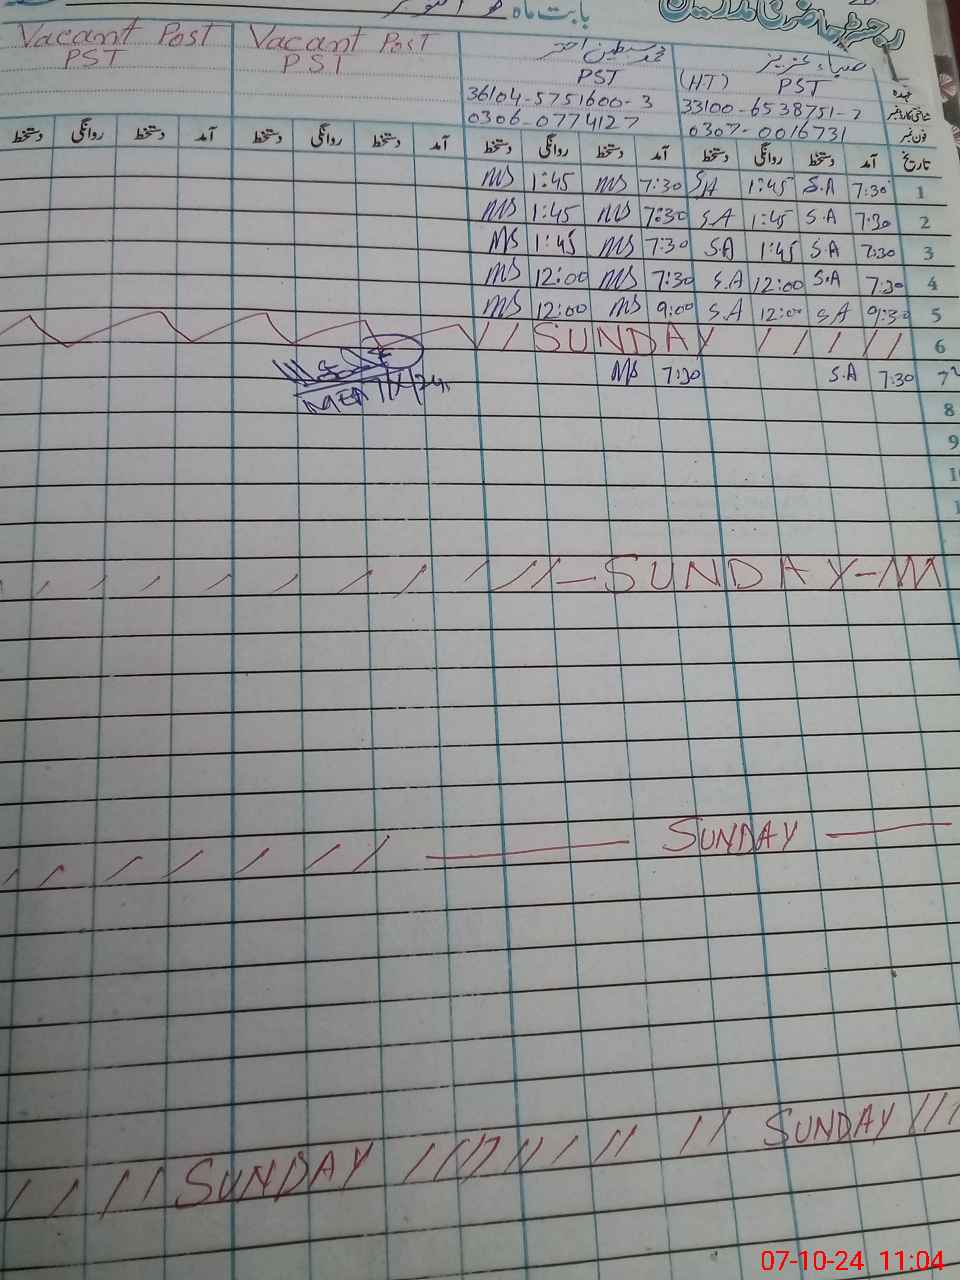 رجسٹر حاضری مدرسین
بابت ماہ اکتوبر
Vacant Post Vacant Post محمد سبطین احمر ضیاء عزیز
PST PST PST (HT) PST عہدہ
36104-5751600-3 33100-6538751-7 شناختی کارڈ نمبر
0306-0774127 0307-0016731 فون نمبر
دستخط روانگی دستخط آمد دستخط روانگی دستخط آمد دستخط روانگی دستخط آمد دستخط روانگی دستخط آمد تاریخ
MS 1:45 MS 7:30 S.A 1:45 S.A 7:30 1
MS 1:45 MS 7:30 S.A 1:45 S.A 7:30 2
MS 1:45 MS 7:30 S.A 1:45 S.A 7:30 3
MS 12:00 MS 7:30 S.A 12:00 S.A 7:30 4
MS 12:00 MS 9:00 S.A 12:00 S.A 9:30 5
SUNDAY 6
MS 7:30 S.A 7:30 7
8
9
SUNDAY
SUNDAY
SUNDAY SUNDAY
07-10-24 11:04